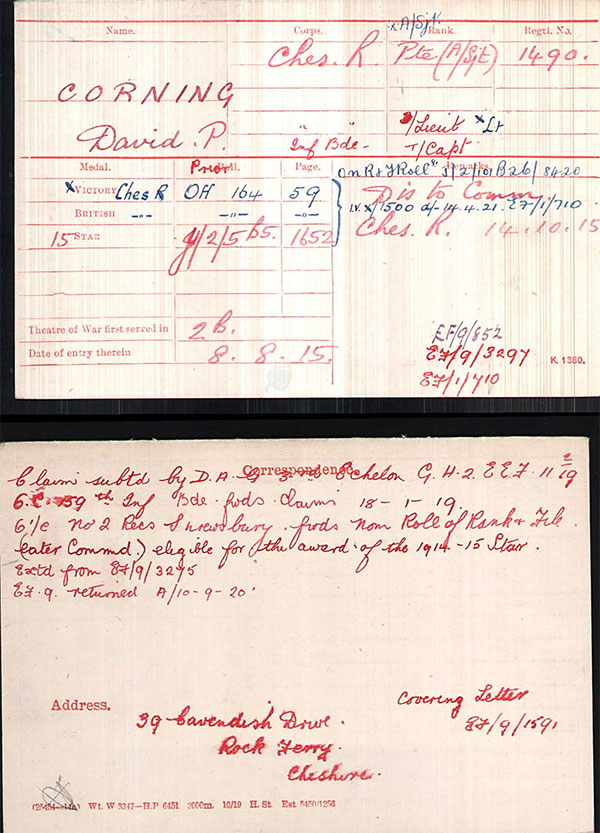 Name. Corps. x A/Sjt. Rank. Regtl. No.
Ches. R. Pte (A/Sjt) 1490.
CORNING
David. P. " Inf Bde - " /Lieut x Lt
T/Capt
Medal. Prior Roll. Page. On R. & F Roll" J/2/101 B26/ 8420 Remarks.
x VICTORY Ches R OH 164 59 Dis to Comm.
BRITISH -"- -"- -"- IV. x/1500 d/- 14.4.21. EF/1/710.
15 STAR J/2/5 B5. 1652 Ches. R. 14.10.15
Theatre of War first served in 2B.
Date of entry therein 8. 8. 15.
EF/9/852
EF/9/3297
EF/1/710
K. 1380.
Correspondence.
Claim subtd by D.A.G. Echelon G.H.2. E E F. 11 2/19
59th Inf Bde. fwds claims 18-1-19.
O i/c No 2 Recs Shrewsbury. fwds nom Roll of Rank & File
(later Commd.) eligible for the award of the 1914-15 Star.
Extd from EF/9/3295
EF. 9. returned A/10-9-20.
Address.
39 Cavendish Drive.
Rock Ferry.
Cheshire.
Covering Letter
EF/9/1591
Wt. W 3347—H.P 6451 2000m. 10/19 H. St. Est 5450/1258